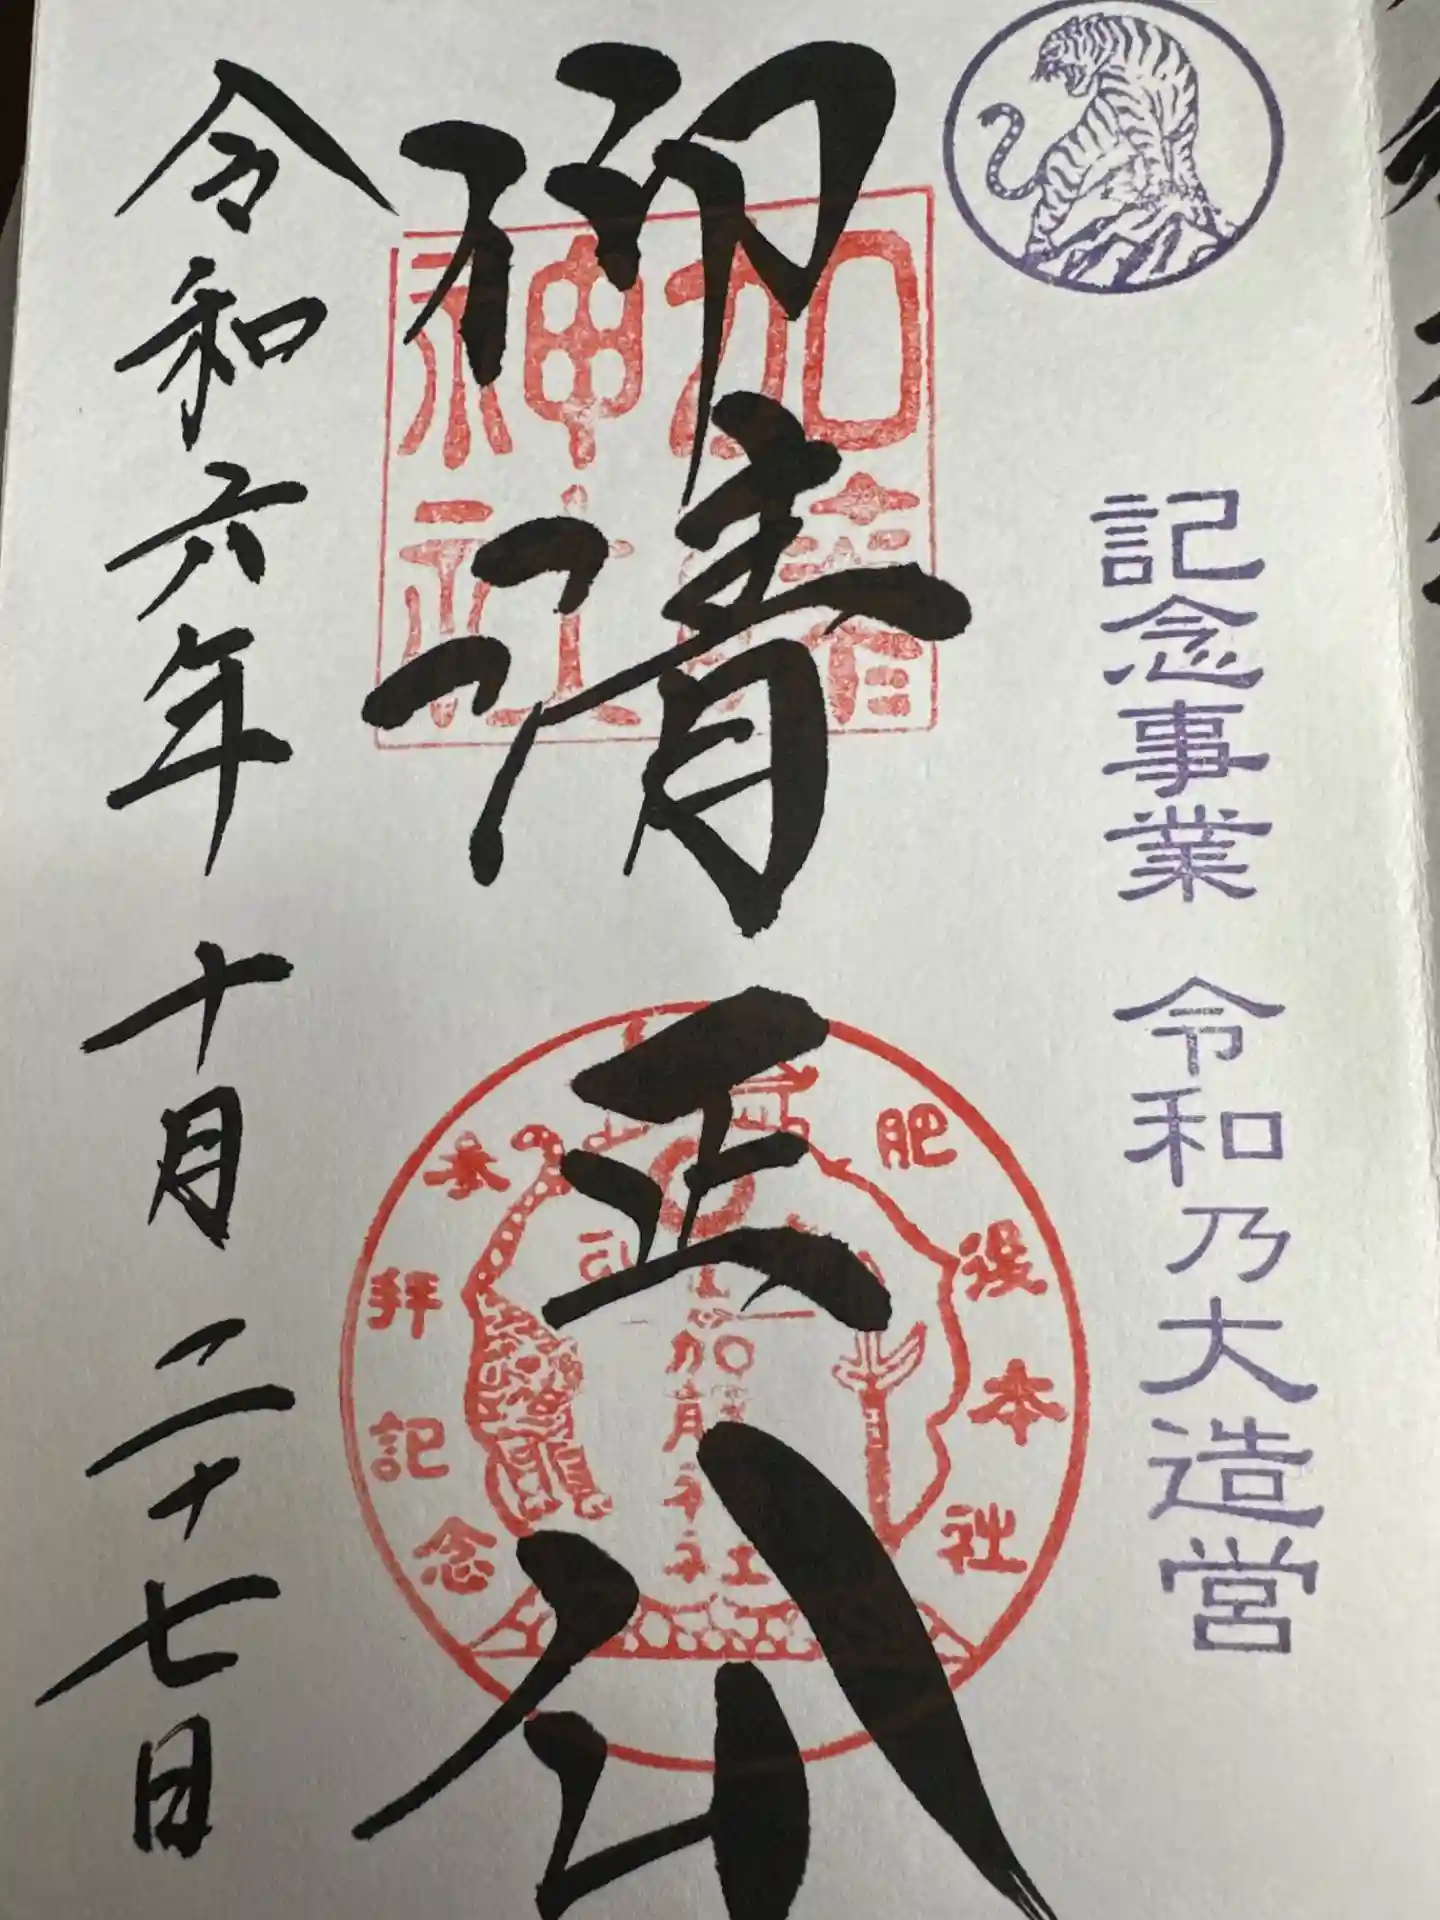 記念事業 令和乃大造営
仰清正公
加藤
神社
肥後本社
参拝記念
加藤神社
令和六年十月二十七日